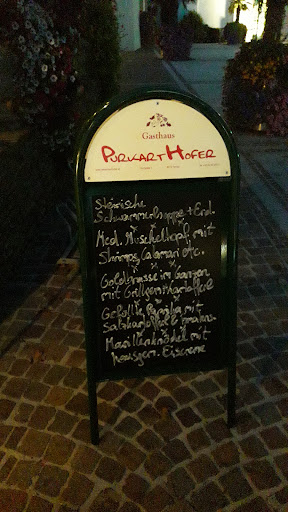 Gasthaus
PURKARTHOFER
Steirische
Schwammerlsuppe + Erd.
Med. Muscheltopf mit
Shrimps, Calamari etc.
Goldbrasse im Ganzen
mit Grillgem. + Kartoffel
Gefüllte Paprika mit
Salzkartoffel &
Marillenknödel mit
Eiscreme